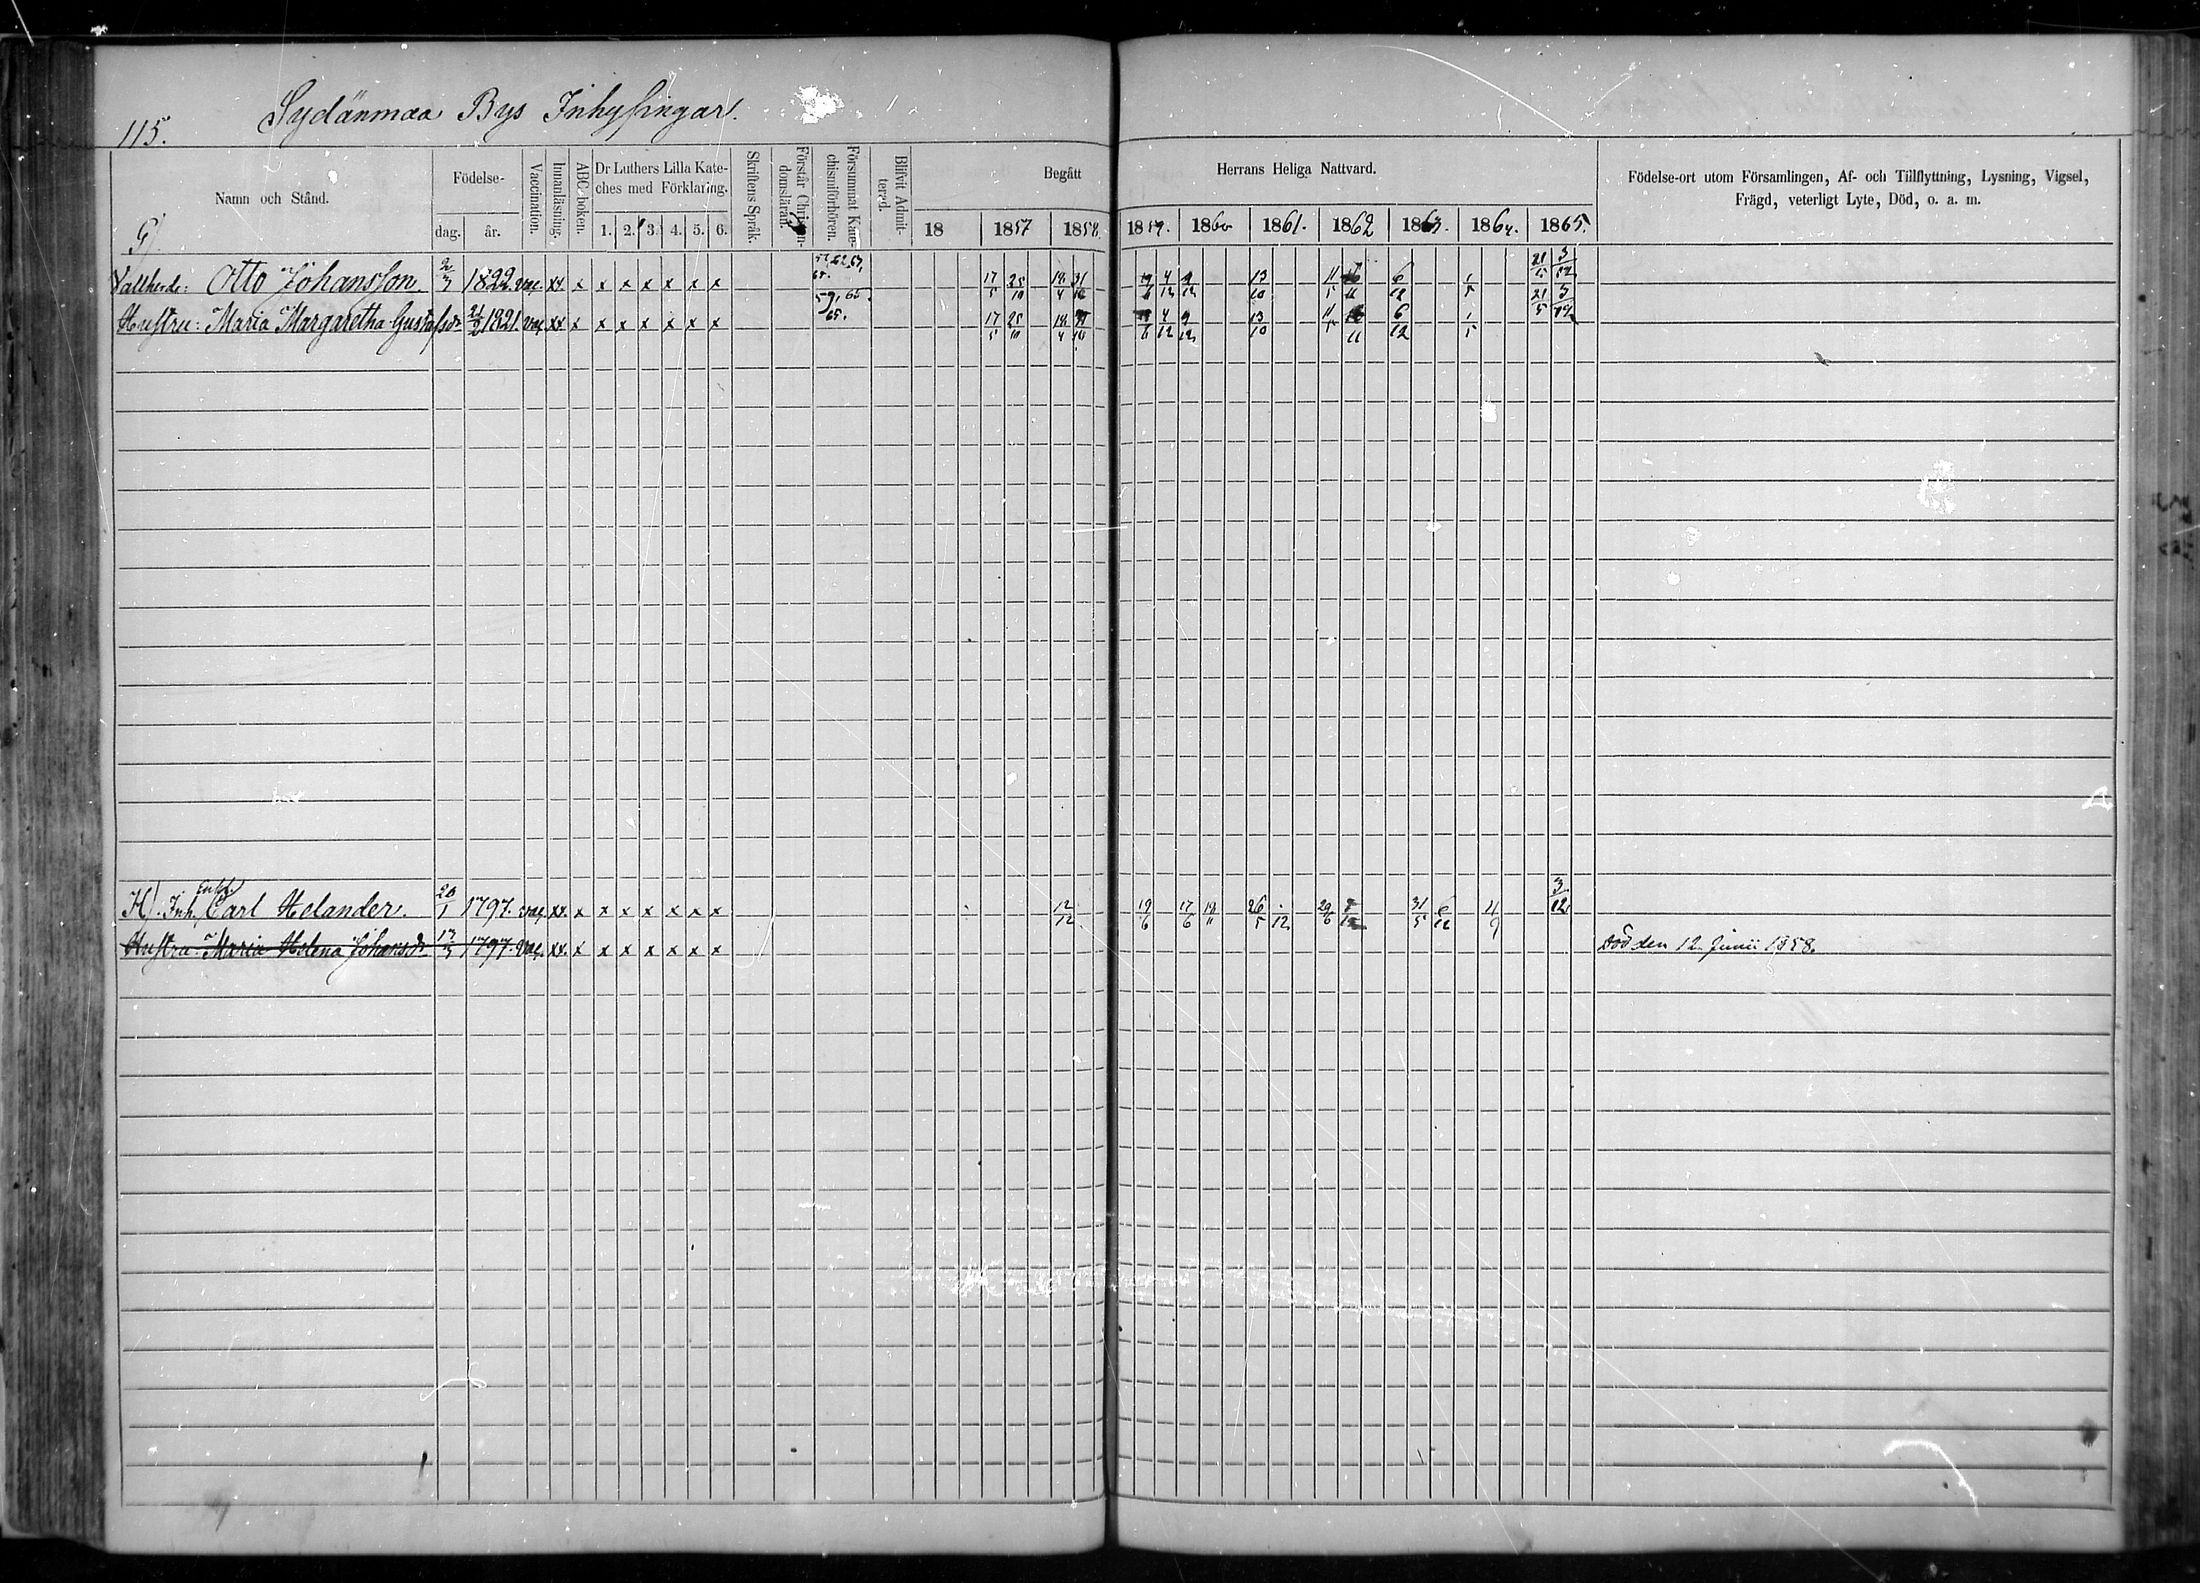 115. Sydänmaa Bys Inhysingar.
Namn och Stånd. Födelse- dag. år. Vaccination. Innanläsning. ABC-boken. Dr Luthers Lilla Kate-ches med Förklaring. 1. 2. 3. 4. 5. 6. Skriftens Språk. Förstår Christen-domsläran. Försummat Kate-chismiförhören. Blifvit Admit-terad. Begått Herrans Heliga Nattvard. 18 1857 1858. 1859. 1860 1861. 1862 1863. 1864. 1865. Födelse-ort utom Församlingen, Af- och Tillflyttning, Lysning, Vigsel, Frägd, veterligt Lyte, Död, o. a. m.
G)
Vallherde: Otto Johansson. 2/3 1822. vac. xx. x x x x x x x 17/5 25/10 13/10 6/12 1/5 21/5 3/12
Hustru: Maria Margaretha Gustafsdr 1821. vac. xx x x x x x x x 59, 65. 17/5 25/10 4/12 9/12 13/10 6/12 1/5 21/5 3/12
Enkl.
H). Inh. Carl Helander. 20/1 1797. vac. xx. x x x x x x x 12/12 19/6 17/6 26/5 29/6 31/5 6/12 3/12
Hustru: Maria Helena Johansdr. 13/3 1797. vac. xx. x x x x x x x Död den 12 Junii 1858.